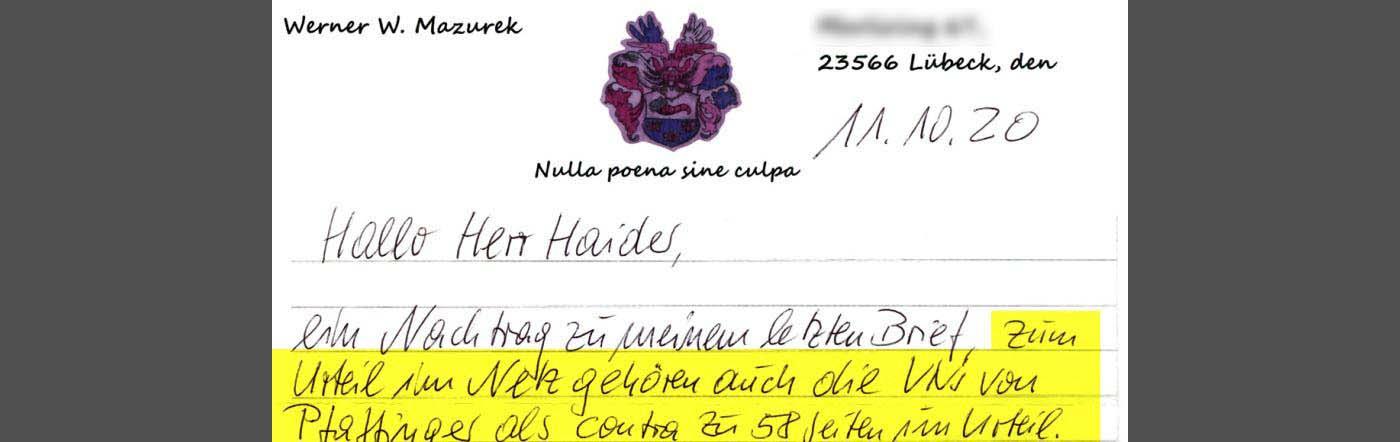 Werner W. Mazurek
23566 Lübeck, den
11.10.20
Nulla poena sine culpa
Hallo Herr Haider,
ein Nachtrag zu meinem letzten Brief, zum
Urteil im Netz gehören auch die VNs von
Pfaffinger als contra zu 58 Seiten im Urteil.